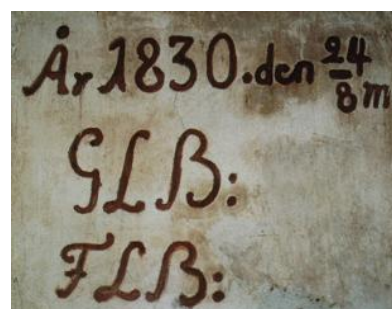 År 1830. den 24/8 m
G L B:
F L B: